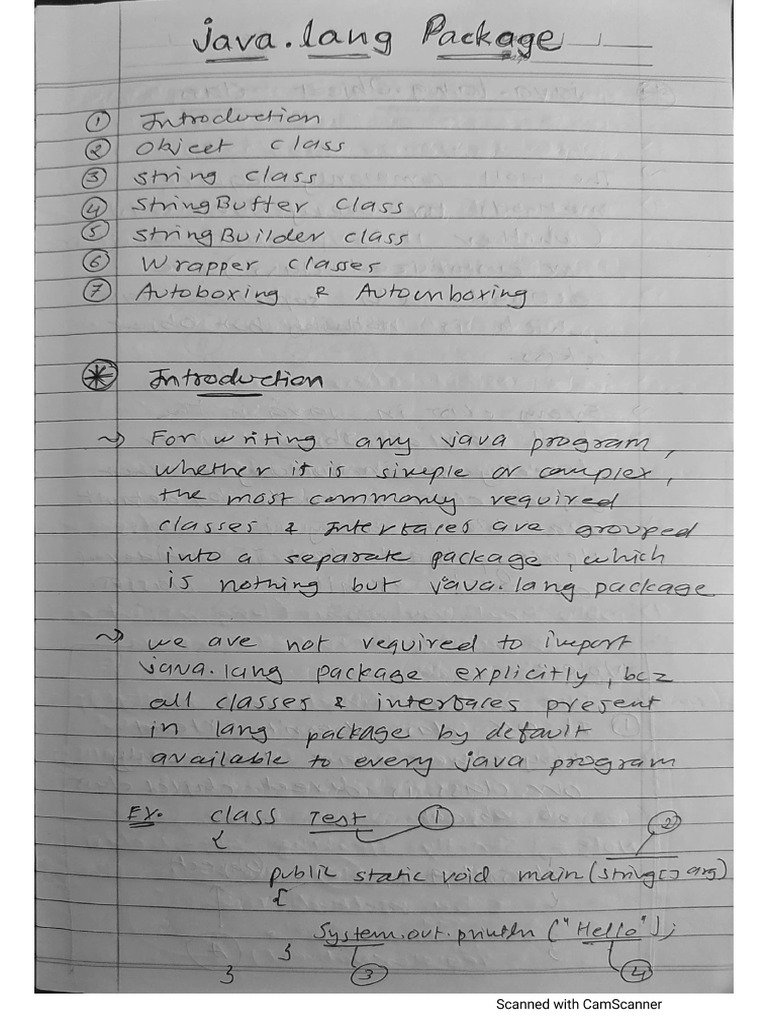 java.lang Package
① Introduction
② Object class
③ string class
④ StringBuffer class
⑤ StringBuilder class
⑥ Wrapper classes
⑦ Autoboxing & Autounboxing
* Introduction
~> For writing any java program,
whether it is simple or complex,
the most commonly required
classes & Interfaces are grouped
into a separate package, which
is nothing but java.lang package
~> we are not required to import
java.lang package explicitly, bcz
all classes & interfaces present
in lang package by default
available to every java program
EX:- class Test ①
{ ②
public static void main (string[] arg)
{
System.out.println ("Hello");
}
} ③ ④
Scanned with CamScanner